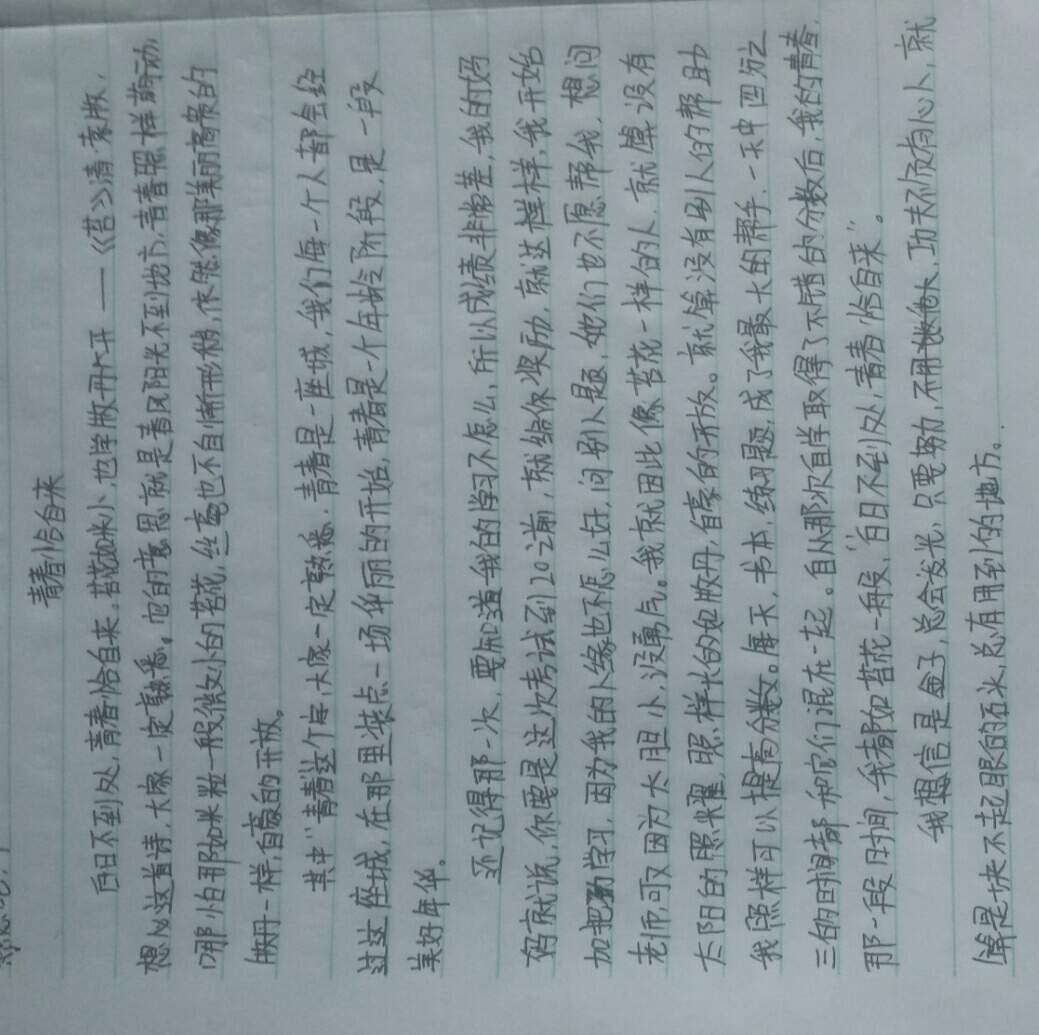 青春恰自来
白日不到处,青春恰自来。苔花如米小,也学牡丹开——《苔》清 袁枚,
想必这首诗,大家一定熟悉。它的意思就是春风阳光不到地方,青春照样萌动,
哪怕那如米粒一般微小的苔花,丝毫也不自惭形秽,依然像那美丽高贵的
牡丹一样,自豪的开放。
其中“青春”这个字,大家一定熟悉,青春是一座城,我们每一个人都会经
过这座城,在那里装点一场华丽的开始,青春是一个年龄阶段,是一段
美好年华。
还记得那一次,要知道我的学习不怎么,所以成绩非常差,我的妈
妈就说,你要是这次考试到20之前,就给你奖励,就这样样,我开始
加把劲学习,因为我的人缘也不怎么好,问别人题,她们也不愿帮我,想问
老师可又因为太胆小,没勇气。我就因此像苔花一样的人,就算没有
太阳的照耀,照样长的如牡丹,自豪的开放。就算没有别人的帮助
我照样可以提高分数。每天,书本,练习题,成了我最大的帮手,一天中四分之
三的时间都和它们混在一起。自从那次自学取得了不错的分数后,我的青春,
那一段时间,我都如苔花一般,“白日不到处,青春恰自来”。
我想信是金子,总会发光,只要努力,不用他人,功夫不负有心人,就
算是块不起眼的石头,总有用到的地方。